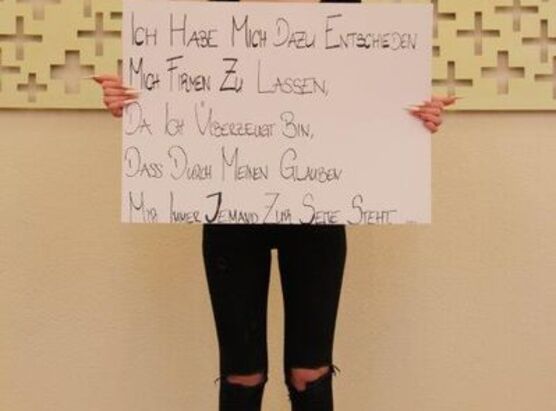 Ich Habe Mich Dazu Entschieden
Mich Firmen Zu Lassen,
Da Ich Überzeugt Bin,
Dass Durch Meinen Glauben
Mir Immer Jemand Zur Seite Steht ...